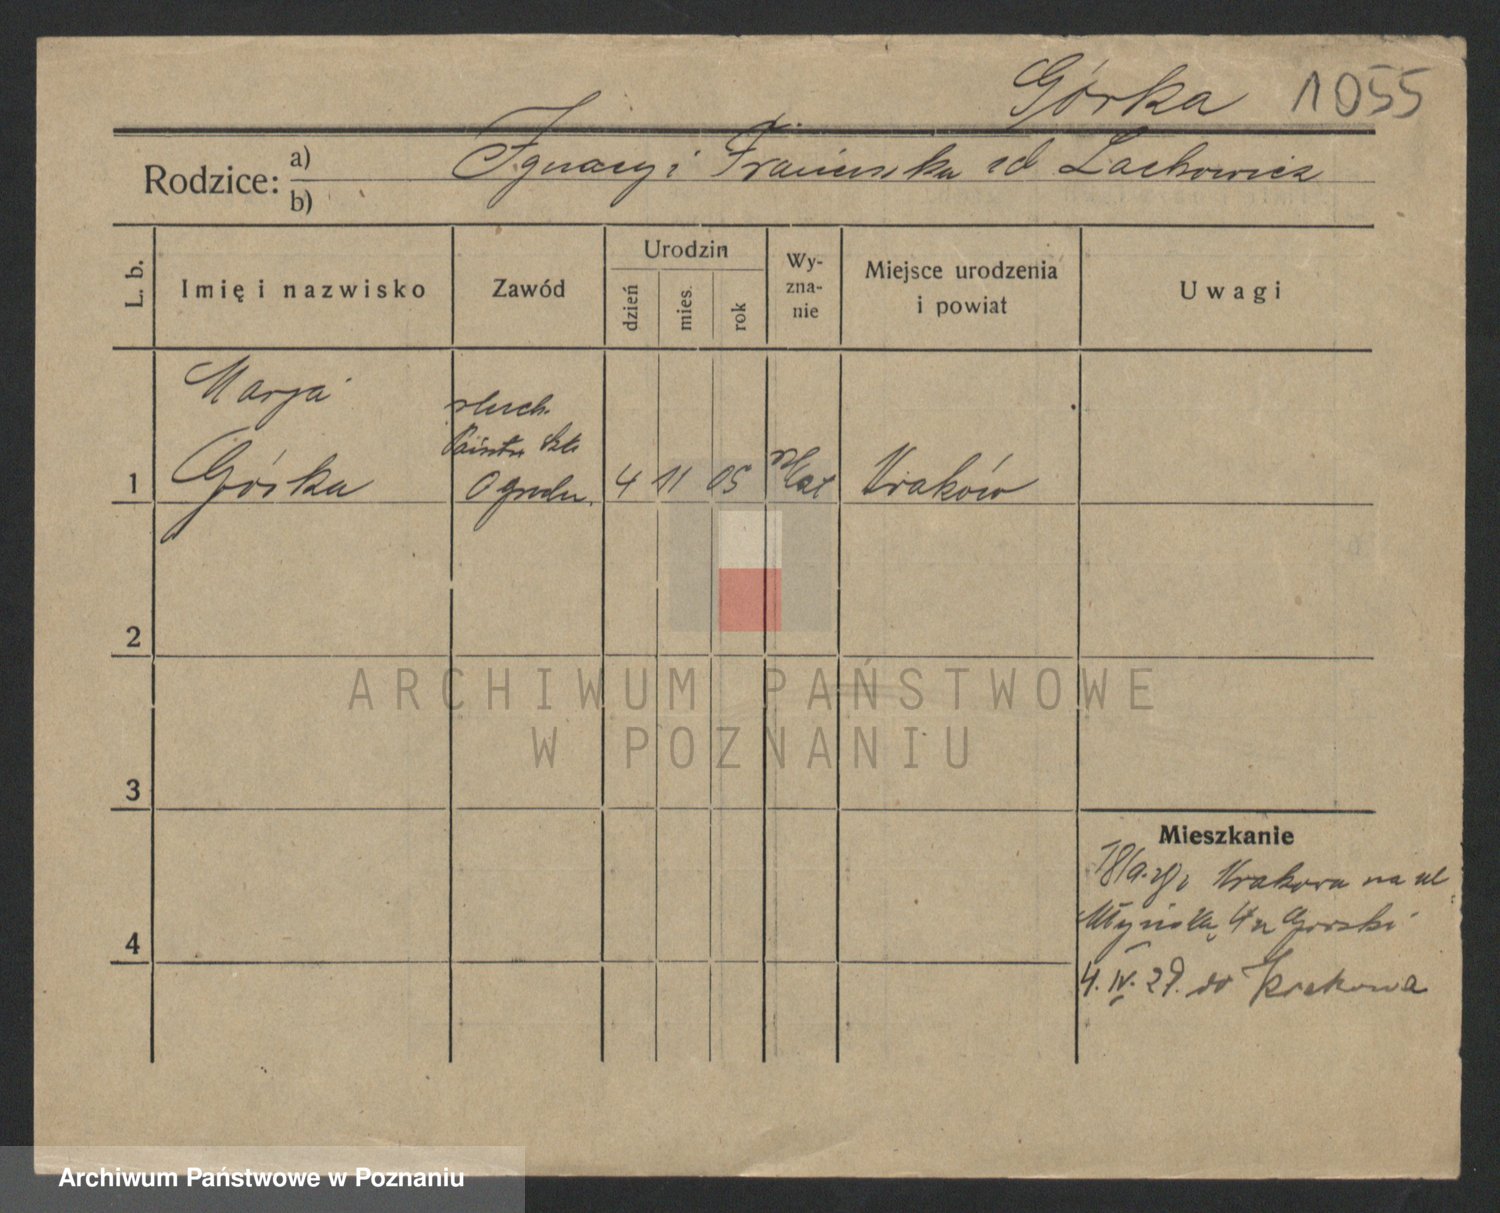 Górka 1055
Rodzice: a) Ignacy i Franciszka zd Lachowicz
b)
L. b.
Imię i nazwisko
Zawód
Urodzin
dzień
mies.
rok
Wy-
zna-
nie
Miejsce urodzenia
i powiat
Uwagi
Marja
Górka
słuch.
Państw. Szk.
Ogrodn.
1 4 11 05 rz kat Kraków
2
3
4
Mieszkanie
z Krakowa na ul
Młyńską 4 u Gorski
4. IV. 27. do Krakowa
ARCHIWUM PAŃSTWOWE
W POZNANIU
Archiwum Państwowe w Poznaniu